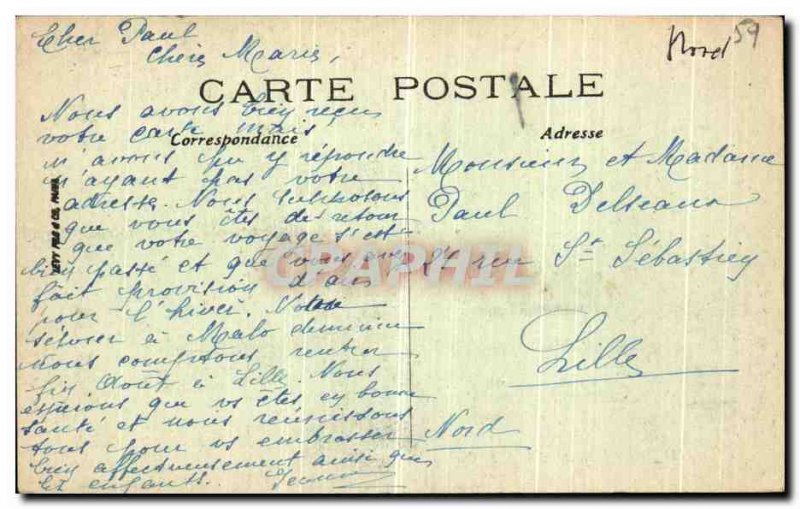 Cher Paul
Chère Marie,
Nord 59
CARTE POSTALE
Correspondance
Adresse
Nous avons bien reçu
votre carte mais
n'avons pu y répondre
n'ayant pas votre
adresse. Nous supposons
que vous êtes de retour
que votre voyage s'est
bien passé et que vous avez
fait provision d'air
pour l'hiver. Notre
séjour à Malo diminue
nous comptons rentrer
fin Août à Lille. Nous
espérons que vs êtes en bonne
santé et nous réunissons
tous pour vs embrasser
bien affectueusement ainsi que
les enfants.
Monsieur et Madame
Paul Delseaux
rue St Sébastien
Lille
Nord
LÉVY FILS & CIE, PARIS
CAPHIL